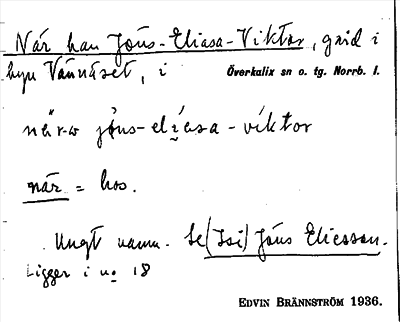 När han Jöns-Eliasa-Viktor, gård i
byn Vännäset, i Överkalix sn o. tg. Norrb. l.
när-w jöns-elíasa-víktor
när = hos.
Ungt namn. Se (Isi) Jöns Eliesson.
Ligger i no 18
EDVIN BRÄNNSTRÖM 1936.